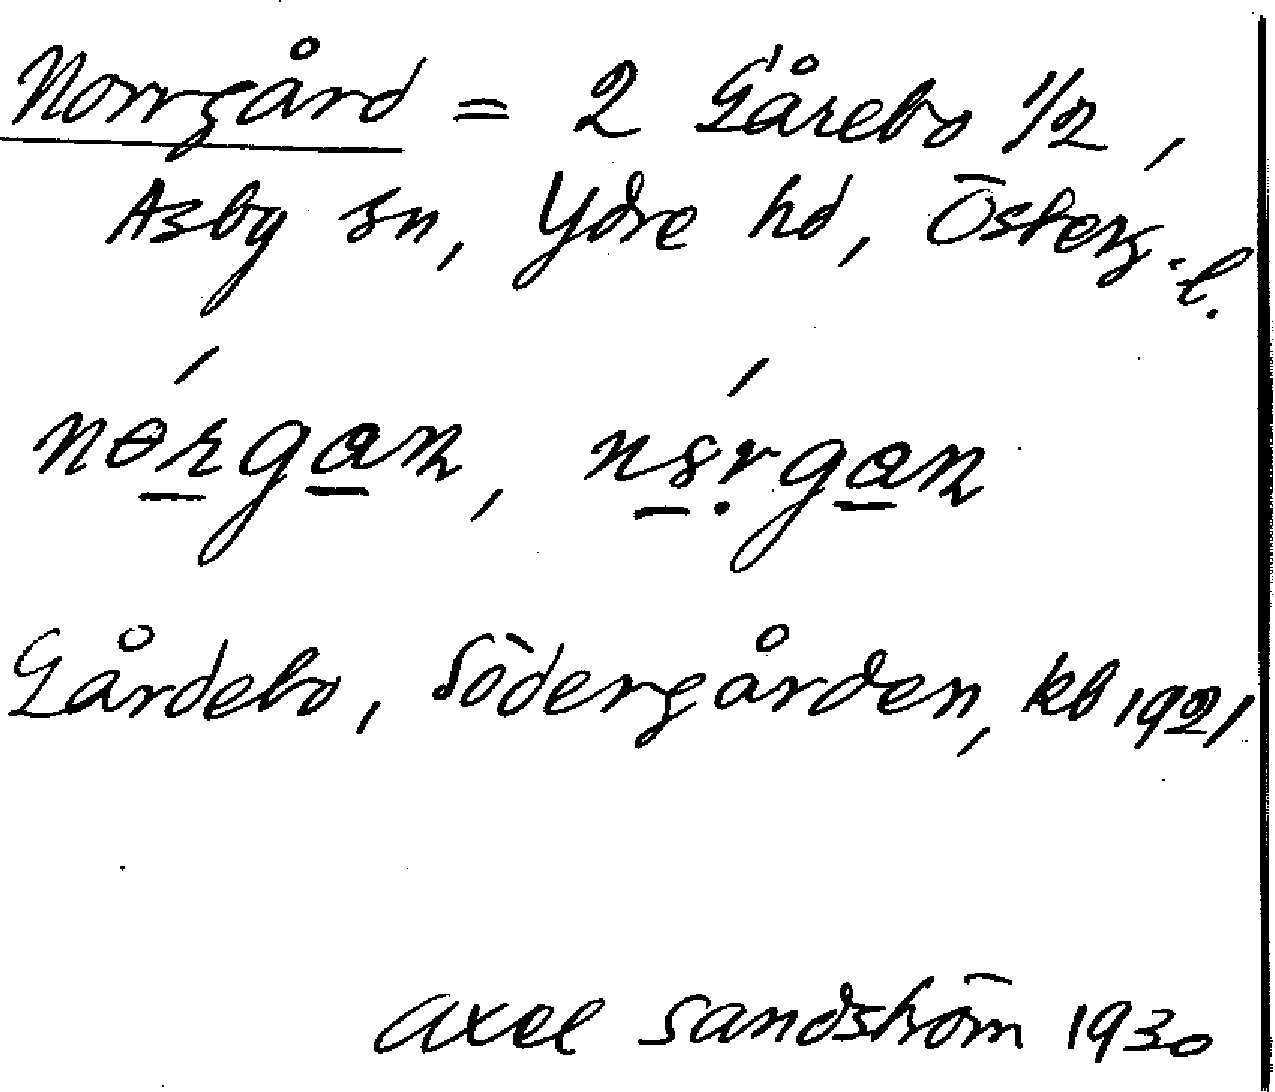 Norrgård = 2 Gårebo 1/2,
Asby sn, Ydre hd, Österg.l.
Gårdebo, Södergården, kb 1921
Axel Sandström 1930